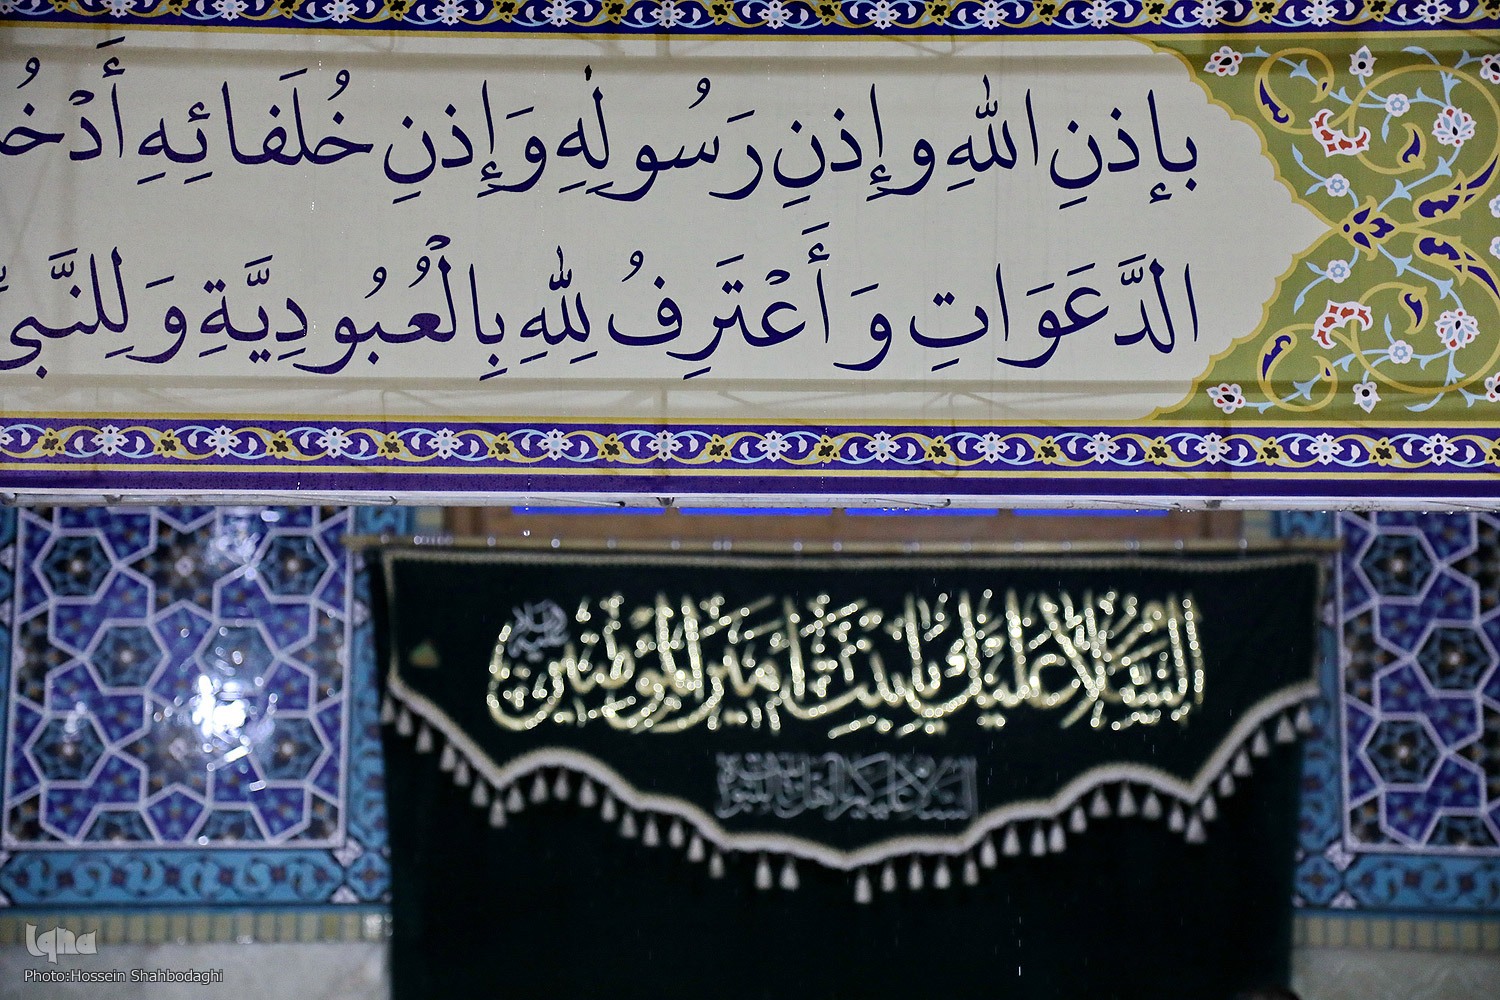 بِإِذنِ اللهِ وَإِذنِ رَسُولِهِ وَإِذنِ خُلَفائِهِ أَدْخُ
الدَّعَوَاتِ وَ أَعْتَرِفُ لِلّٰهِ بِالْعُبُودِيَّةِ وَ لِلنَّبِيِّ
السلام علیک یا بنت امیرالمؤمنین
Iqna
Photo:Hossein Shahbodaghi